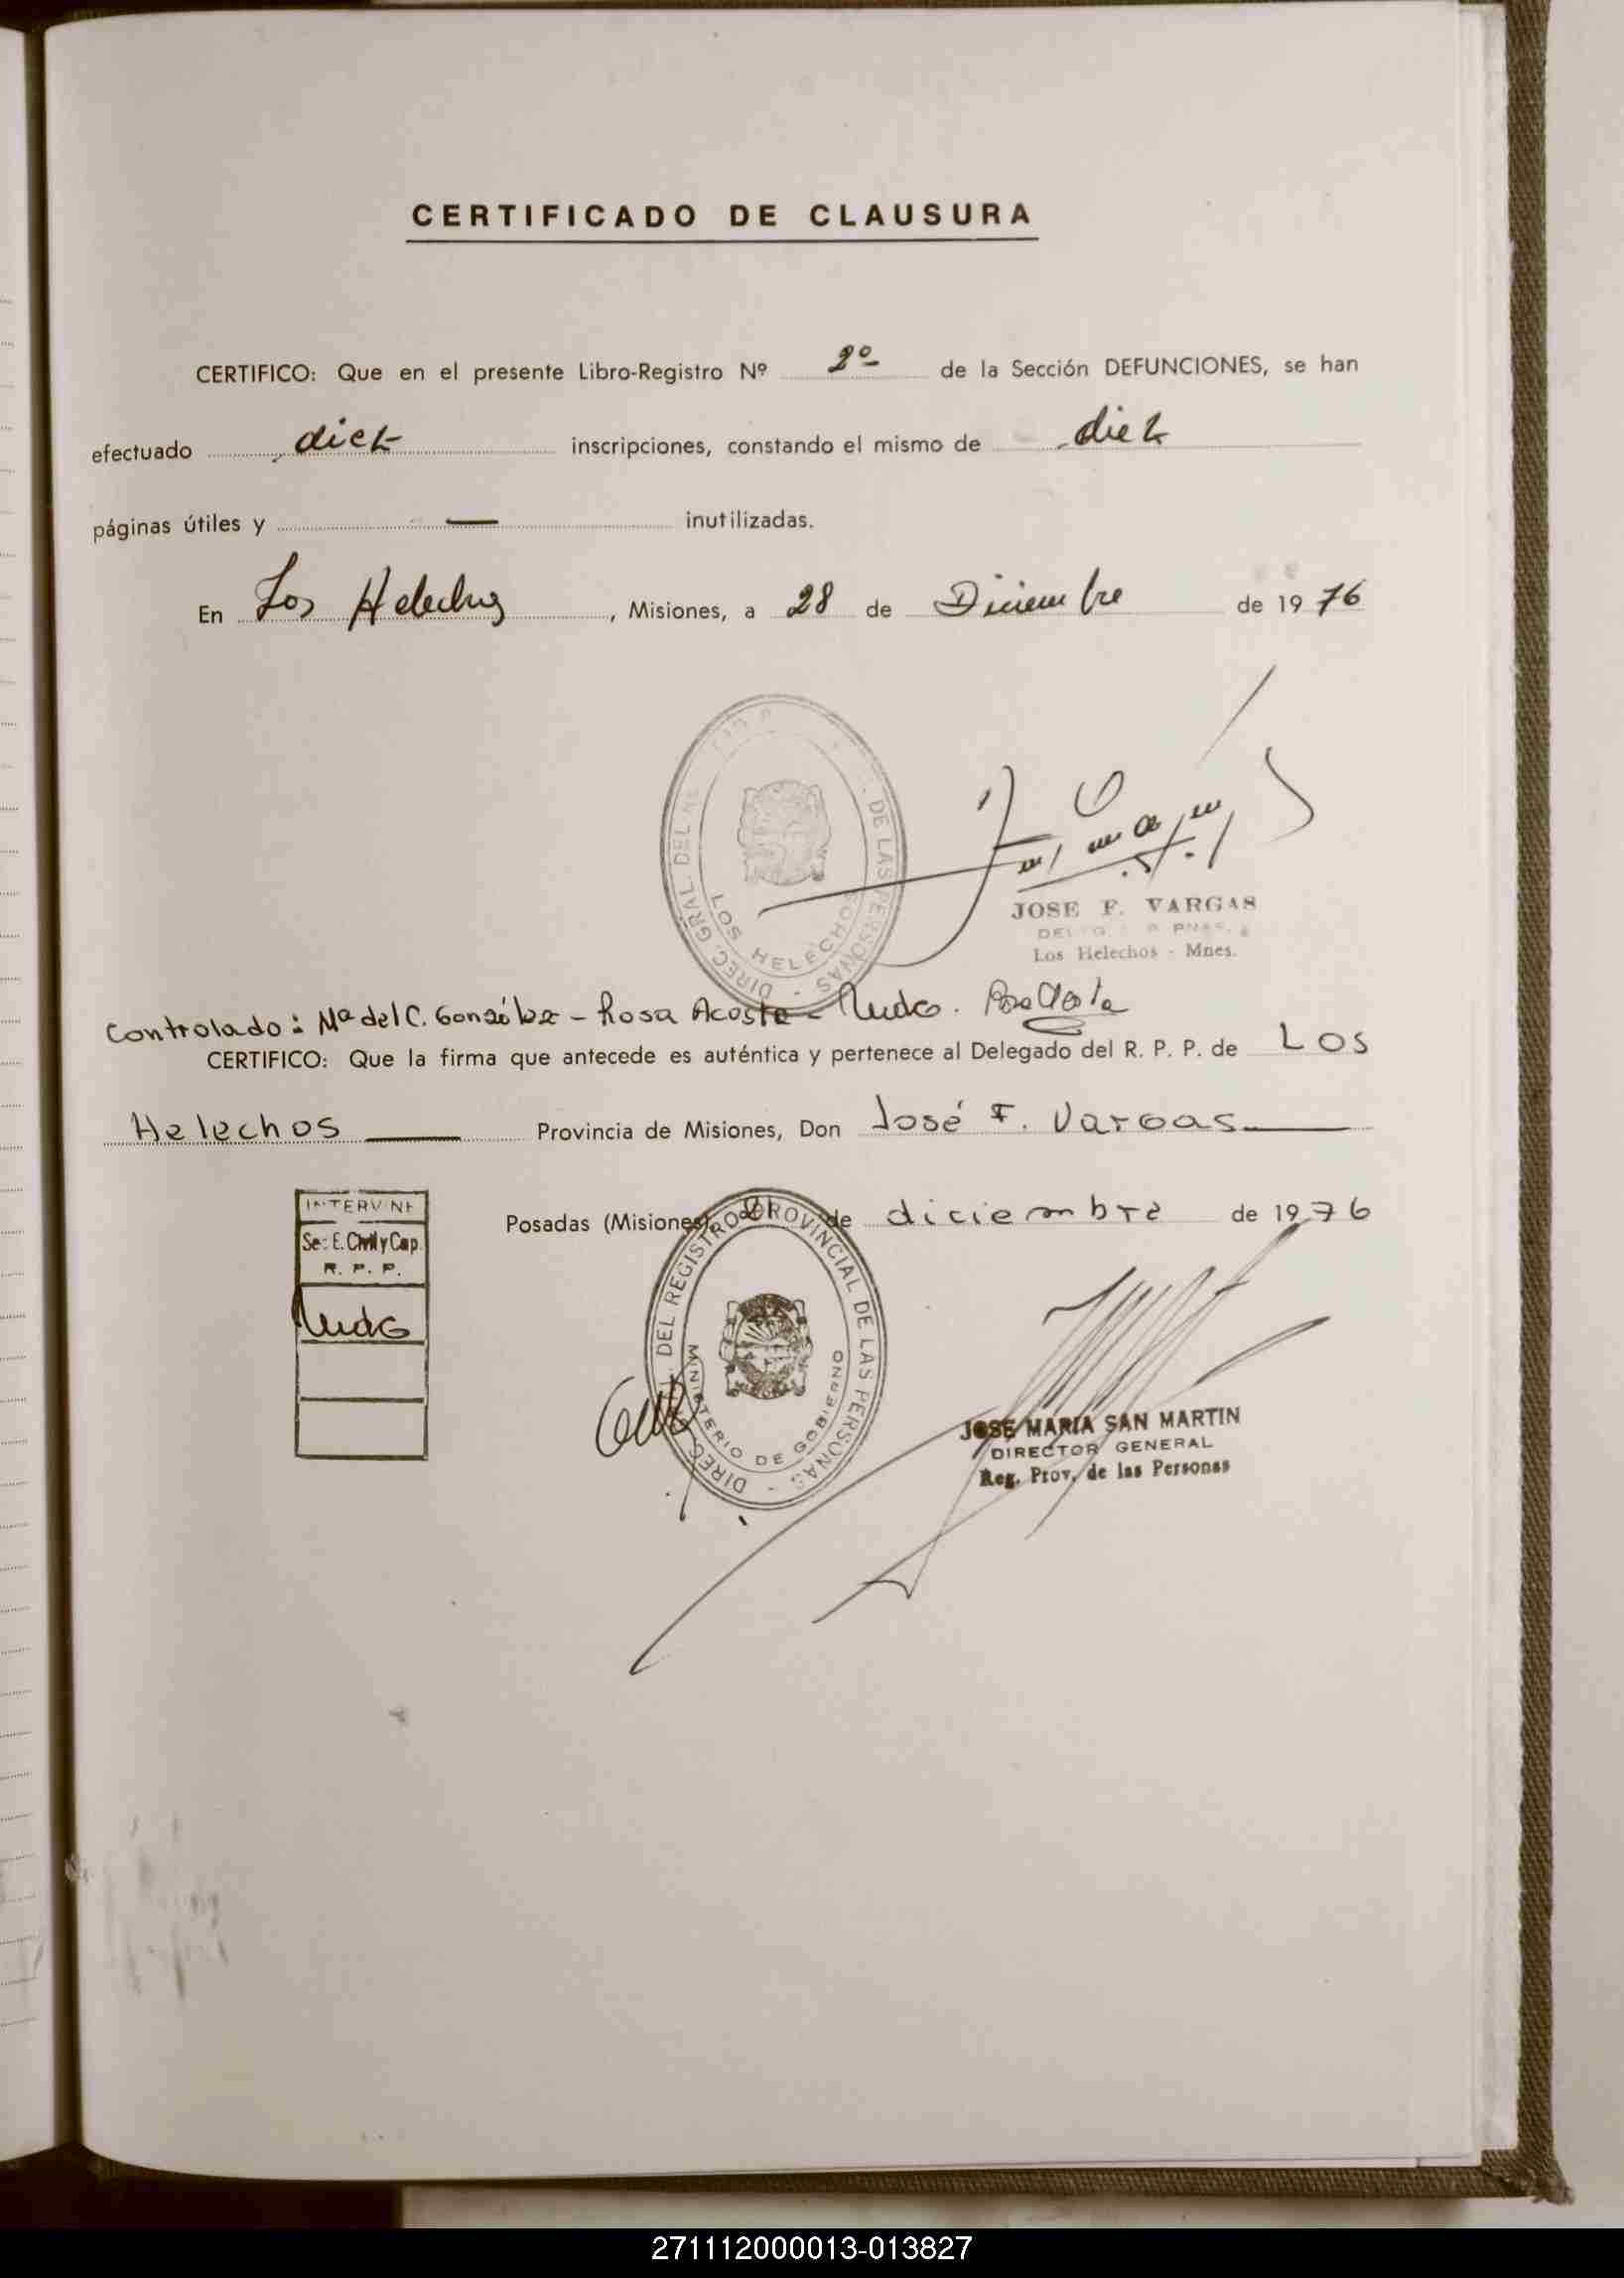 CERTIFICADO DE CLAUSURA
CERTIFICO: Que en el presente Libro-Registro Nº 2º de la Sección DEFUNCIONES, se han
efectuado diez inscripciones, constando el mismo de diez
páginas útiles y — inutilizadas.
En Los Helechos, Misiones, a 28 de Diciembre de 1976
DIREC. GRAL. DEL DE LAS PERSONAS
LOS HELECHOS
JOSE F. VARGAS
Los Helechos - Mnes.
Controlado: Mª del C. González - Rosa Acosta -
CERTIFICO: Que la firma que antecede es auténtica y pertenece al Delegado del R. P. P. de Los
Helechos Provincia de Misiones, Don José F. Vargas
Posadas (Misiones), de diciembre de 1976
INTERVINE
Sec. E. Civil y Cap.
R. P. P.
DIREC. DEL REGISTRO PROVINCIAL DE LAS PERSONAS
MINISTERIO DE GOBIERNO
JOSE MARIA SAN MARTIN
DIRECTOR GENERAL
Reg. Prov. de las Personas
271112000013-013827